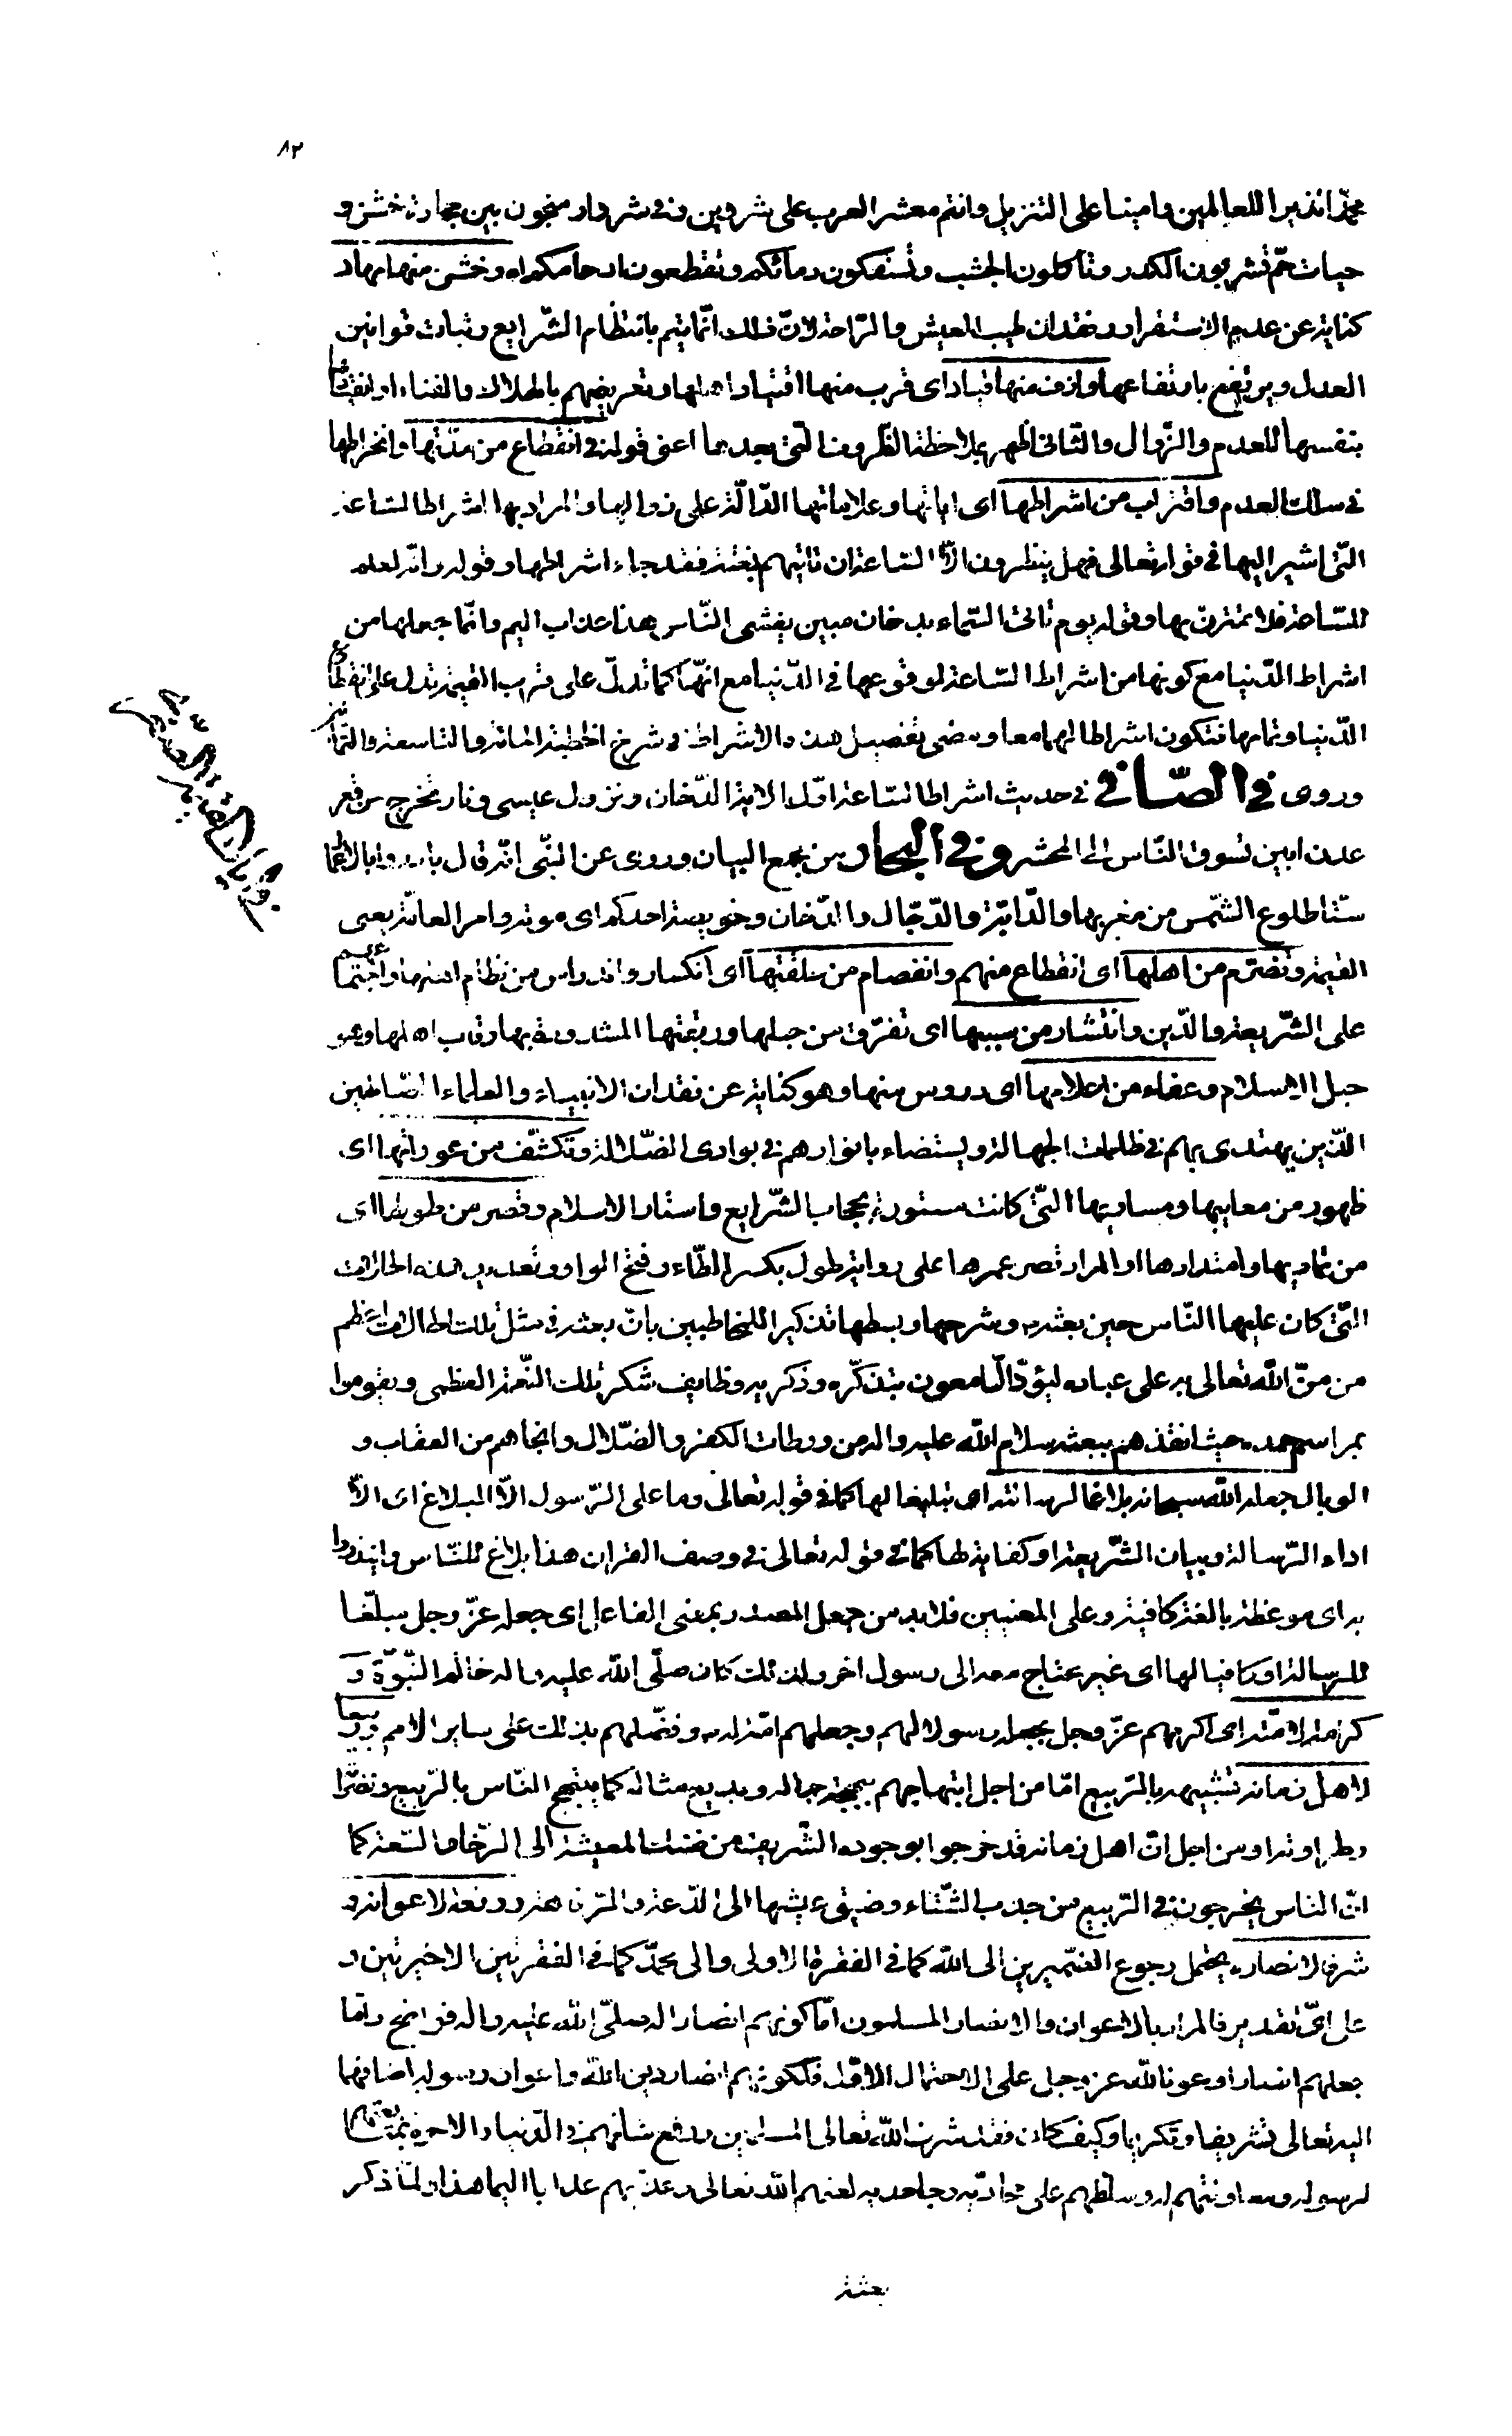 ٨٢
محمّدا نذيرا للعالمين وامينا على التنزيل وانتم معشر العرب على شر دين وفى شر دار منيخون بين حجارة خشن و
حيات صمّ تشربون الكدر وتأكلون الجشب وتسفكون دمائكم وتقطعون ارحامكم اه وخشن منها مهاد
كناية عن عدم الاستقرار وفقدان طيب العيش والرّاحة لانّ ذلك انّما يتم بانتظام الشّرايع وثبات قوانين
العدل ويرتفع بارتفاعها وازف منها قياد اى قرب منها انقياد اهلها وتعريضهم بالهلاك والفناء او انقيادها
بنفسها للعدم والزّوال والثّانى اظهر بملاحظة الظّروف الّتى بعدها اعنى قوله فى انقطاع من مدّتها وانخراطها
فى سلك العدم واقتراب من اشراطها اى اياتها وعلاماتها الدّالّة على زوالها والمراد بها اشراط السّاعة
الّتى اشير اليها فى قوله تعالى فهل ينظرون الاّ السّاعة ان تاتيهم بغتة فقد جاء اشراطها وقوله وانّه لعلم
للسّاعة فلا تمترنّ بها وقوله يوم تأتى السّماء بدخان مبين يغشى النّاس هذا عذاب اليم وانّما جعلها من
اشراط الدّنيا مع كونها من اشراط السّاعة لوقوعها فى الدّنيا مع انّها كما تدلّ على قرب القيمة تدل على انقطاع
الدّنيا وتمامها فتكون اشراطا لهما معا ومضى تفصيل هذه الاشراط فى شرح الخطبة المائة والتاسعة والثّمانين
وروى فى الصّافى فى حديث اشراط السّاعة اوّل الاية الدّخان ونزول عيسى ونار تخرج من قعر
عدن ابين تسوق النّاس الى المحشر وفى البحار من مجمع البيان وروى عن النّبى انّه قال بادروا بالاعمال
ستّا طلوع الشّمس من مغربها والدّابّة والدّجّال والدّخان وخويصة احدكم اى موته وامر العامّة يعنى
القيمة وتصرّم من اهلها اى انقطاع منهم وانفصام من حلقتها اى انكسار واندراس من نظام اهلها واجتماعهم
على الشّريعة والدّين وانتشار من سببها اى تفرّق من حبلها وربقتها المشدودة بها رقاب اهلها وهو
حبل الاسلام وعفاء من اعلامها اى دروس منها وهو كناية عن فقدان الانبياء والعلماء الصّالحين
الّذين يهتدى بهم فى ظلمات الجهالة ويستضاء بانوارهم فى بوادى الضّلالة وتكشّف من عوراتها اى
ظهور من معايبها ومساويها الّتى كانت مستورة بحجاب الشّرايع واستار الاسلام وقصر من طولها اى
من تماديها وامتدادها او المراد قصر عمرها على رواية طول بكسر الطّاء وفتح الواو وتعديد هذه الحالات
الّتى كان عليها النّاس حين بعثه وشرحها وبسطها تذكيرا للمخاطبين بانّ بعثه فى مثل تلك الحالات اعظم
من منّ اللّه تعالى به على عباده ليؤدّ السّامعون بتذكّره وذكره وظايف شكر تلك النّعمة العظمى ويقوموا
بمراسم حمده حيث انقذهم ببعثه سلام اللّه عليه واله من ورطات الكفر والضّلال وانجاهم من العقاب و
الوبال جعله اللّه سبحانه بلاغا لرسالته اى تبليغا لها كما فى قوله تعالى وما على الرّسول الاّ البلاغ اى الاّ
اداء الرّسالة وبيان الشّريعة او كفاية لها كما فى قوله تعالى فى وصف القران هذا بلاغ للنّاس ولينذروا
به اى موعظة بالغة كافية وعلى المعنيين فلا بد من جعل المصدر بمعنى الفاعل اى جعله عزّ وجل مبلّغا
للرسالة او كافيا لها اى غير محتاج معه الى رسول اخر ولذلك كان صلّى اللّه عليه واله خاتم النّبوّة و
كرامة لامّته اى اكرمهم عزّ وجل بجعله رسولا لهم وجعلهم امّة له وفضّلهم بذلك على ساير الامم وربيعا
لاهل زمانه تشبيهه بالرّبيع امّا من اجل ابتهاجهم ببهجة جماله وبديع مثاله كما يبتهج النّاس بالرّبيع ونضرته
وطراوته او من اجل انّ اهل زمانه قد خرجوا بوجوده الشّريف من ضنك المعيشة الى الرّخاء والسّعة كما
انّ الناس يخرجون فى الرّبيع من جدب الشّتاء وضيق عيشها الى الدّعة والرّفاهة ورفعة لاعوانه و
شرفا لانصاره يحتمل رجوع الضّميرين الى اللّه كما فى الفقرة الاولى والى محمّد كما فى الفقرتين الاخيرتين و
على اىّ تقدير فالمراد بالاعوان والانصار المسلمون امّا كونهم انصارا له صلّى اللّه عليه واله فواضح وامّا
جعلهم انصارا وعونا للّه عزّ وجل على الاحتمال الاوّل فلكونهم انصار دين اللّه واعوان رسوله اضافهما
اليه تعالى تشريفا وتكريما وكيف كان فقد شرف اللّه تعالى المسلمين ورفع شانهم فى الدّنيا والاخرة بمتابعتهم
لرسوله ومعاونتهم له وسلّطهم على محادّيه وجاحديه لعنهم اللّه تعالى وعذّبهم عذابا اليما هذا ولمّا ذكر
بعثته